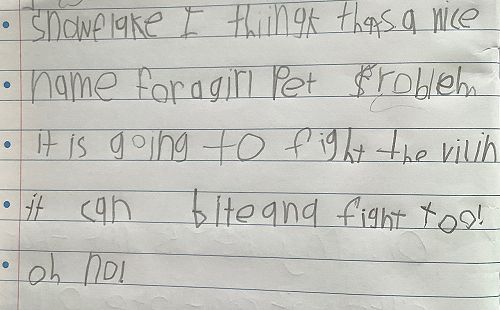 snowflake I thingk thats a nice
name for a girl Pet Problem
it is going to fight the vilin
it can bite and fight too!
oh no!